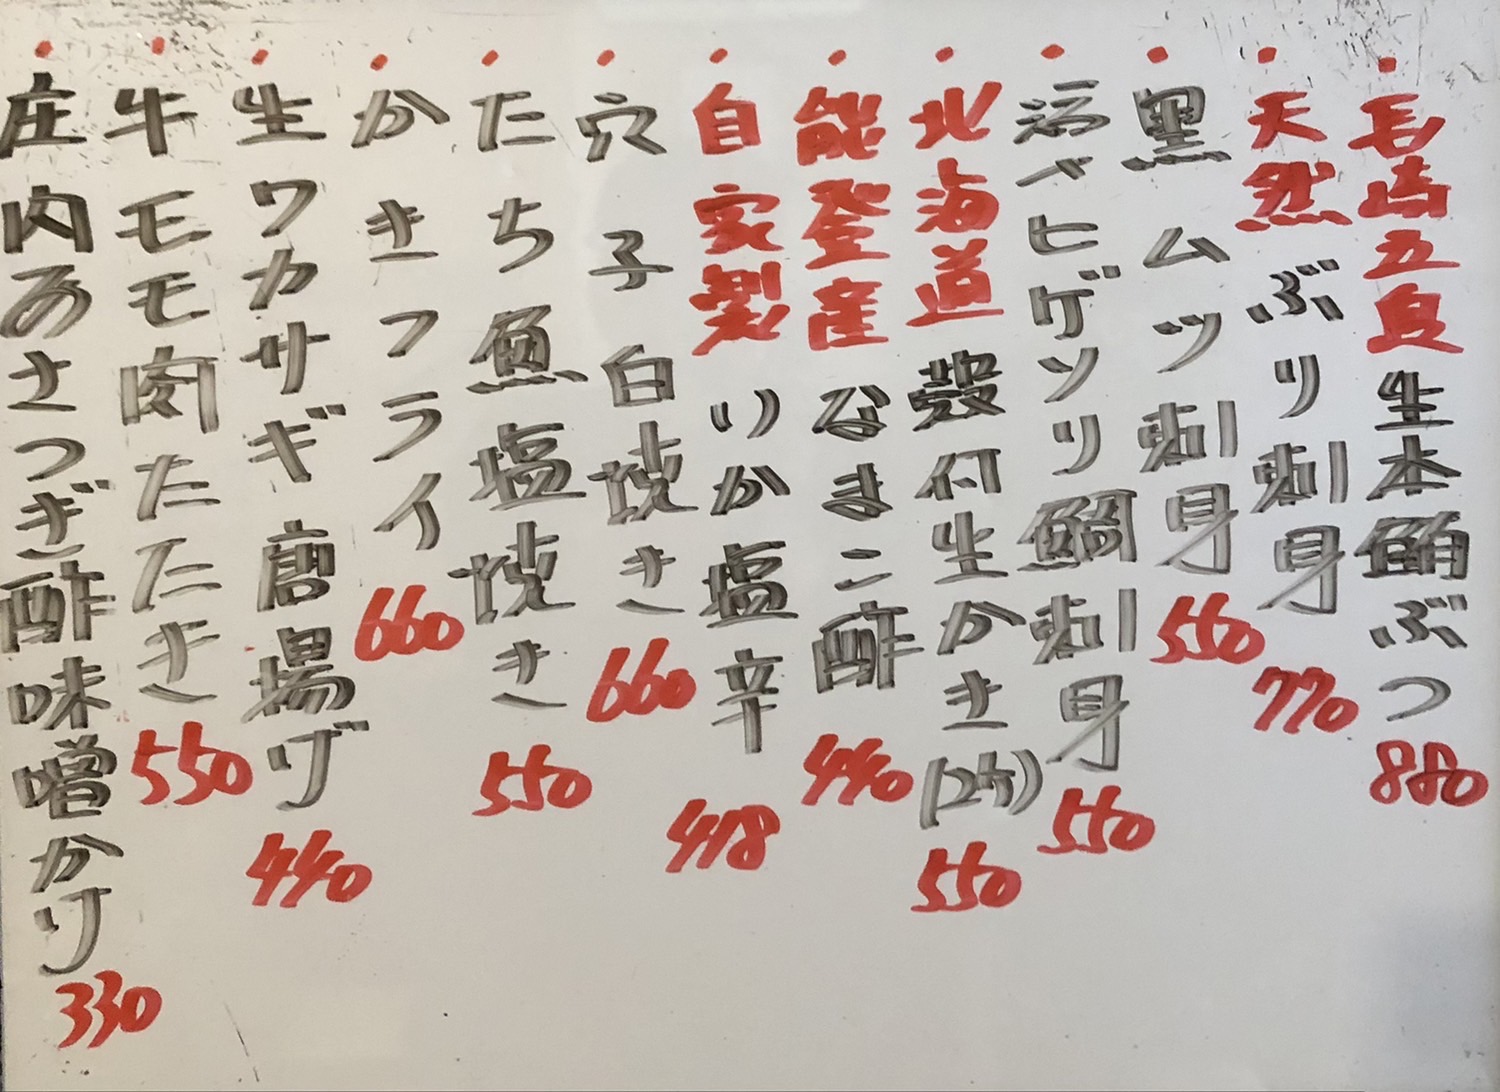 長崎五島生本鮪ぶつ 880
天然ぶり刺身 770
黒ムツ刺身 550
活〆ヒゲソリ鯛刺身 550
北海道殻付生かき(2ケ) 550
能登産なまこ酢 440
自家製いか塩辛 418
穴子白焼き 660
たち魚塩焼き 550
かきフライ 660
生ワカサギ唐揚げ 440
牛モモ肉たたき 550
庄内あさつぎ酢味噌かけ 330